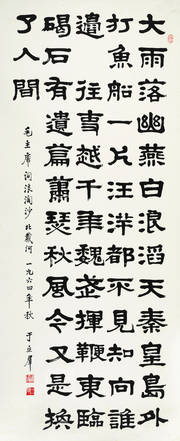 大雨落幽燕白浪滔天秦皇島外
打魚船一片汪洋都不見知向誰
邊往事越千年魏武揮鞭東臨
碣石有遺篇蕭瑟秋風今又是換
了人間
毛主席詞浪淘沙 北戴河 一九六四年秋 于立群